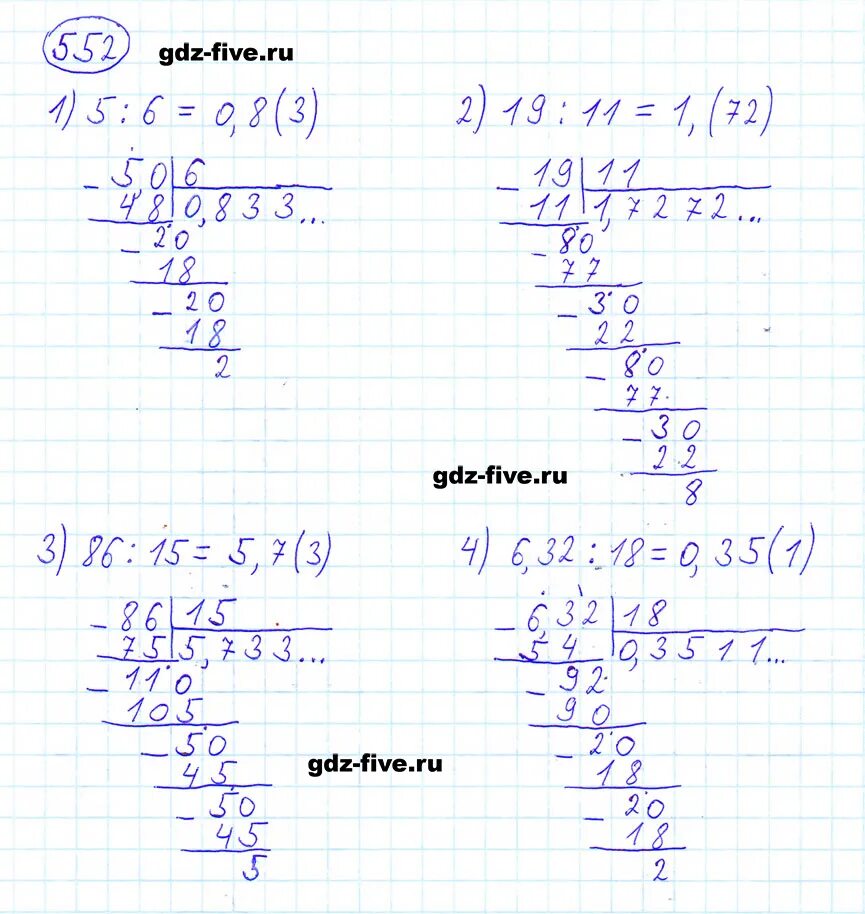 552 gdz-five.ru
1) 5 : 6 = 0,8(3)
- 5,0 | 6
48 | 0,833...
- 20
18
- 20
18
2
2) 19 : 11 = 1,(72)
- 19 | 11
11 | 1,7272...
- 80
77
- 30
22
- 80
77
- 30
22
8
gdz-five.ru
3) 86 : 15 = 5,7(3)
- 86 | 15
75 | 5,733...
- 110
105
- 50
45
- 50
45
5
gdz-five.ru
4) 6,32 : 18 = 0,35(1)
- 6,32 | 18
54 | 0,3511...
- 92
90
- 20
18
- 20
18
2